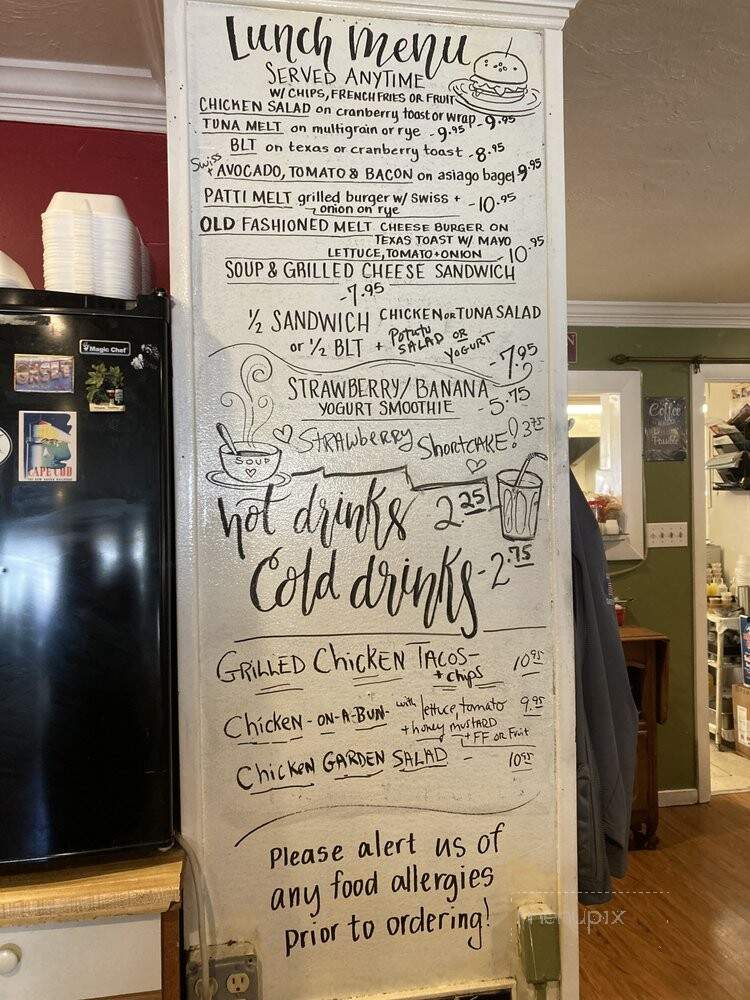 Lunch Menu
SERVED ANYTIME
W/ CHIPS, FRENCH FRIES OR FRUIT
CHICKEN SALAD on cranberry toast or wrap - 9.95
TUNA MELT on multigrain or rye - 9.95
BLT on texas or cranberry toast - 8.95
Swiss + AVOCADO, TOMATO & BACON on asiago bagel 9.95
PATTI MELT grilled burger w/ swiss + - 10.95
onion on rye
OLD FASHIONED MELT CHEESE BURGER ON
TEXAS TOAST W/ MAYO
LETTUCE, TOMATO + ONION 10.95
SOUP & GRILLED CHEESE SANDWICH
- 7.95
1/2 SANDWICH CHICKEN OR TUNA SALAD
or 1/2 BLT + Potato SALAD OR YOGURT - 7.95
STRAWBERRY/BANANA
YOGURT SMOOTHIE - 5.75
STRAWBERRY SHORTCAKE! 3.75
SOUP
hot drinks 2.25
Cold drinks - 2.75
GRILLED CHICKEN TACOS - 10.95
+ chips
Chicken-ON-A-BUN- with lettuce, tomato 9.95
+ honey MUSTARD
+ FF OR Fruit
Chicken GARDEN SALAD - 10.95
Please alert us of
any food allergies
prior to ordering!
Magic Chef
CAPE COD
Coffee
menupix